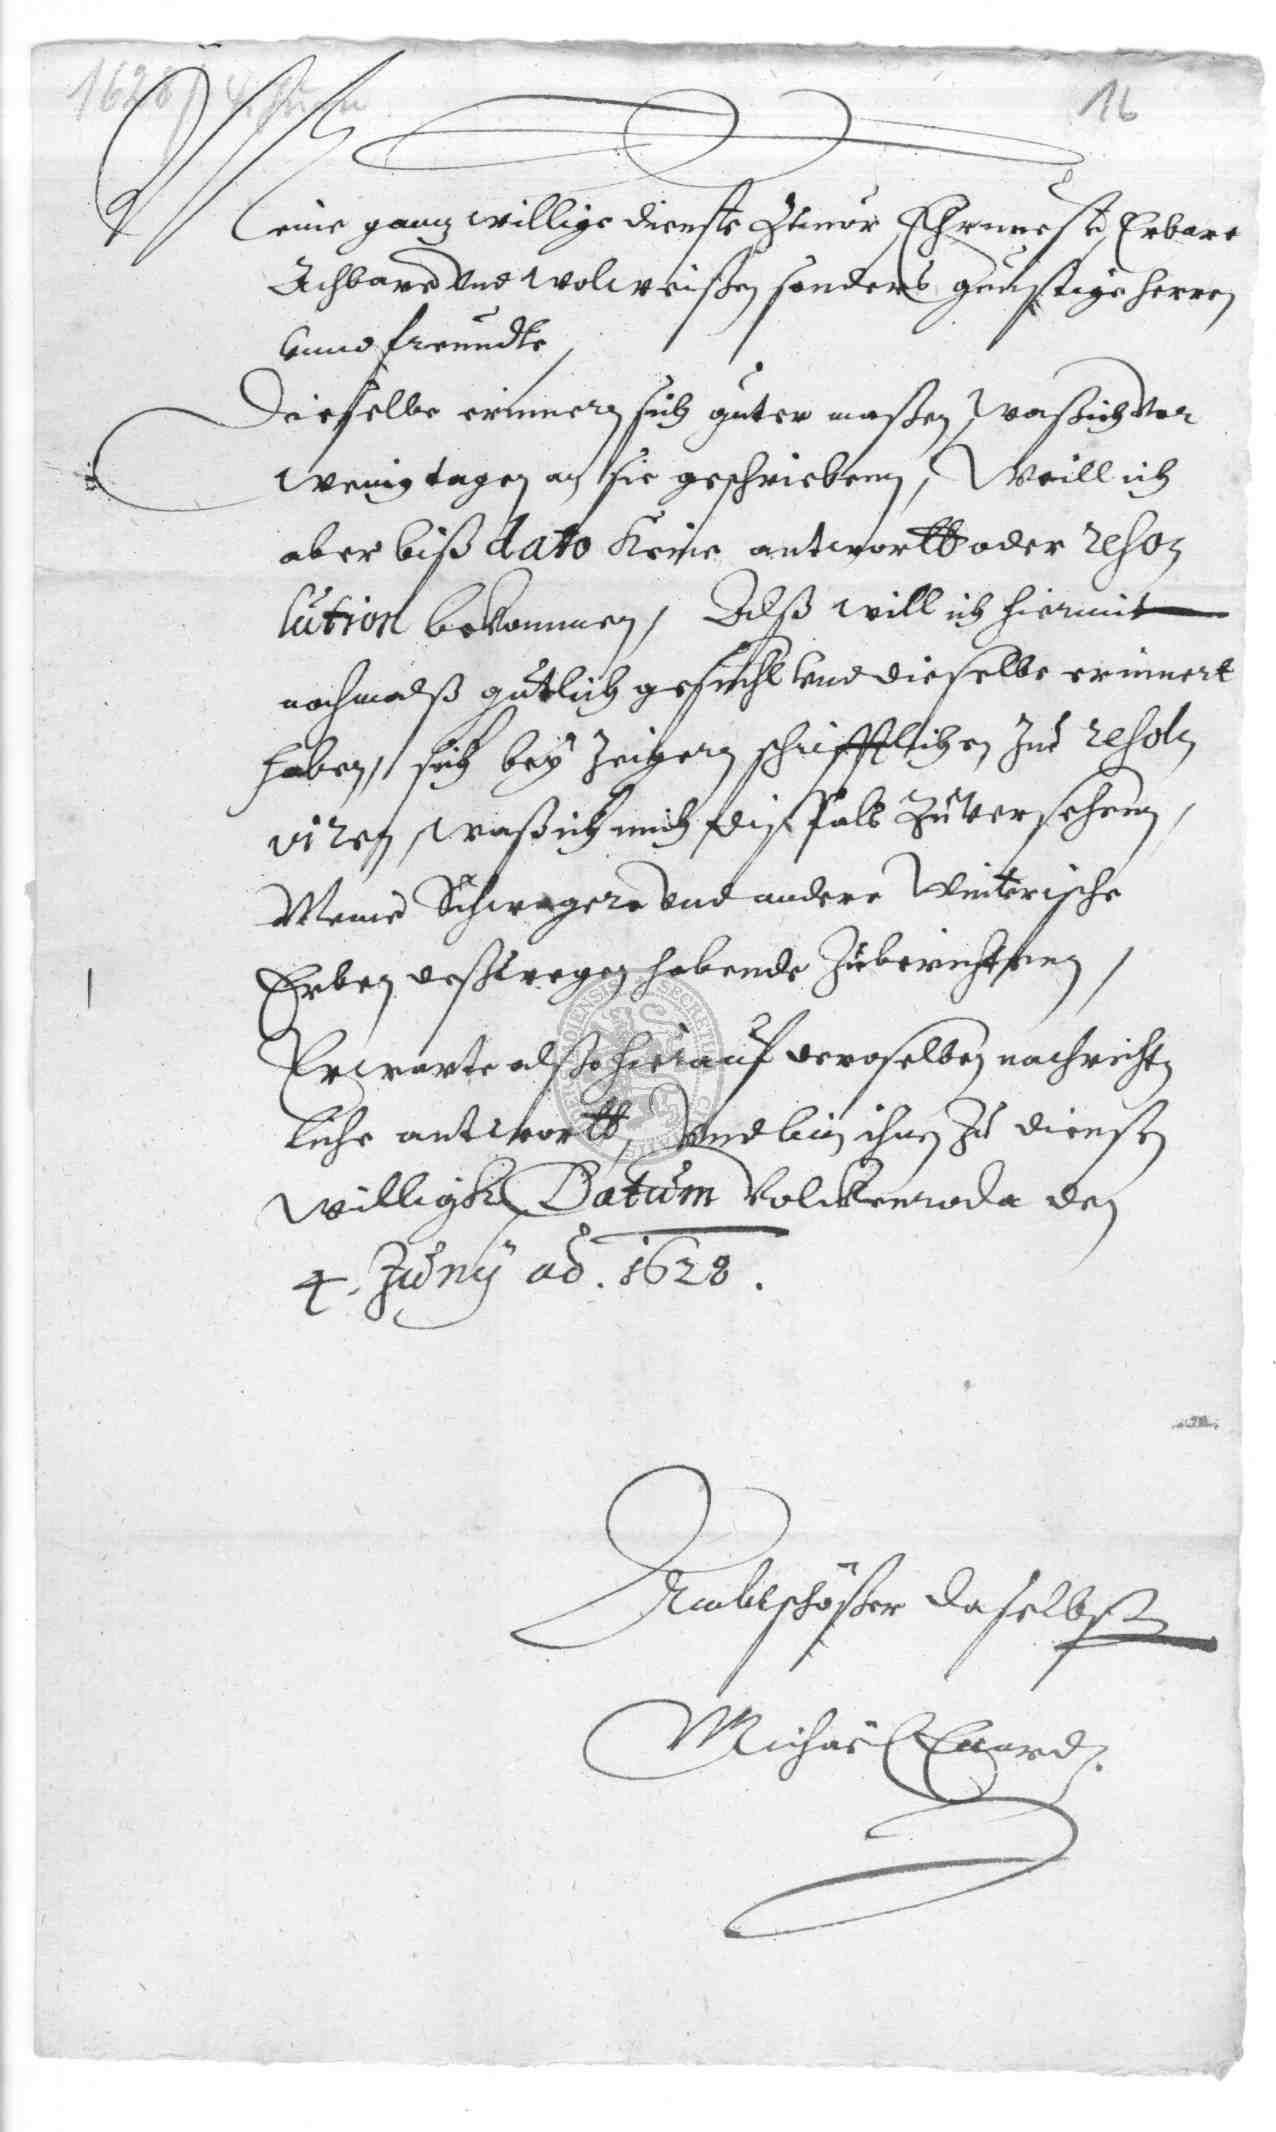 1628 4. Juni
16
Meine ganz willige dienste Zuuor, Ehrnueste, Erbare
Achbare vnd wolweißen sonders günstige herren
vnnd freundte,
Dieselbe erinnern sich guter maßen, waß ich vor
wenig tagen an sie geschriebenn, Weill ich
aber biß dato keine antwortt oder reso-
lution bekommen, Alß will ich hiermit
nochmalß gütlich gesucht vnd dieselbe erinnert
haben, sich bey Zeigern schrifftlichen Zue resol-
viren, waß ich mich dißfalß Zuuersehenn,
Meine Schwegere vnd andere Winterische
Erben deßwegen habende Zuberichtenn,
Erwarte alßo hierauf deroselben nachricht-
liche antwortt, Vnd bin ihnen Zu diensten
willigk, Datum Volckenroda den
4. Junÿ ao. 1628.
Ambtschößer daselbst
Michael